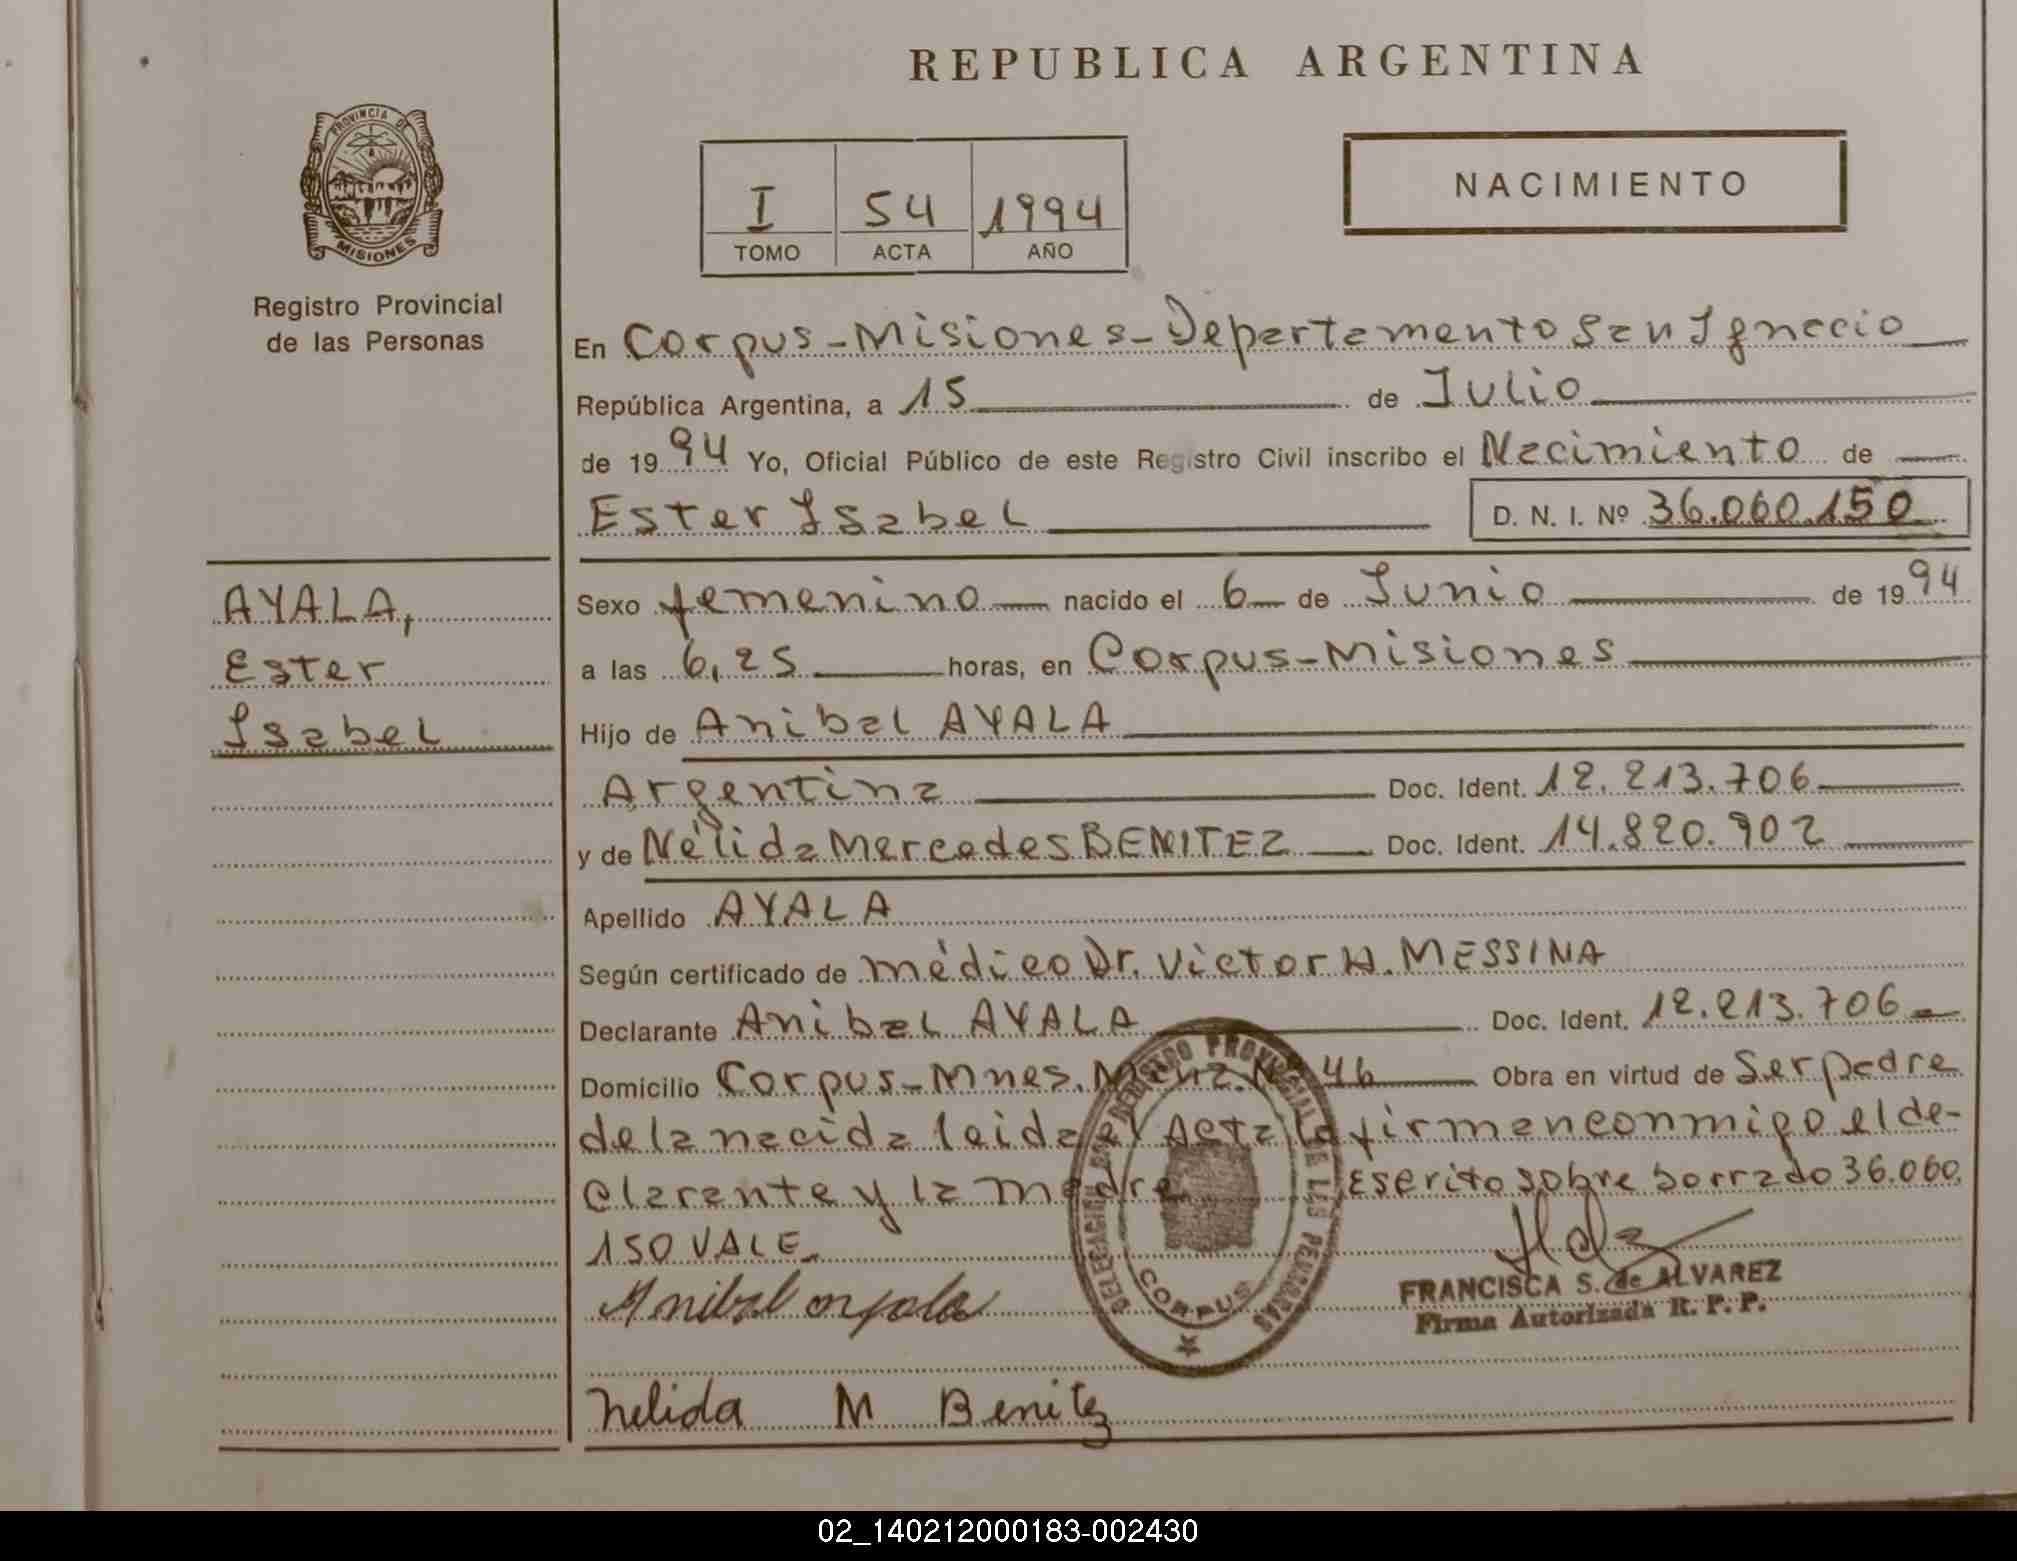 REPUBLICA ARGENTINA
PROVINCIA DE
MISIONES
Registro Provincial
de las Personas
I 54 1994
TOMO ACTA AÑO
NACIMIENTO
En Corpus-Misiones-Departamento San Ignacio
República Argentina, a 15 de Julio
de 1994 Yo, Oficial Público de este Registro Civil inscribo el Nacimiento de
Ester Isabel D. N. I. Nº 36.060.150
AYALA,
Ester
Isabel
Sexo femenino nacido el 6 de Junio de 1994
a las 6,25 horas, en Corpus-Misiones
Hijo de Anibal AYALA
Argentina Doc. Ident. 12.213.706
y de Nélida Mercedes BENITEZ Doc. Ident. 14.820.902
Apellido AYALA
Según certificado de médico Dr. Victor H. MESSINA
Declarante Anibal AYALA Doc. Ident. 12.213.706
Domicilio Corpus-Mnes. Manz. Nº 46 Obra en virtud de Ser padre
de la nacida leida el Acta la firman conmigo el de-
clarante y la madre Escrito sobre borrado 36.060.
150 VALE.
Anibal ayala
FRANCISCA S. de ALVAREZ
Firma Autorizada R. P. P.
DELEGACION DEL REGISTRO PROVINCIAL DE LAS PERSONAS
CORPUS
Nelida M Benitez
02_140212000183-002430